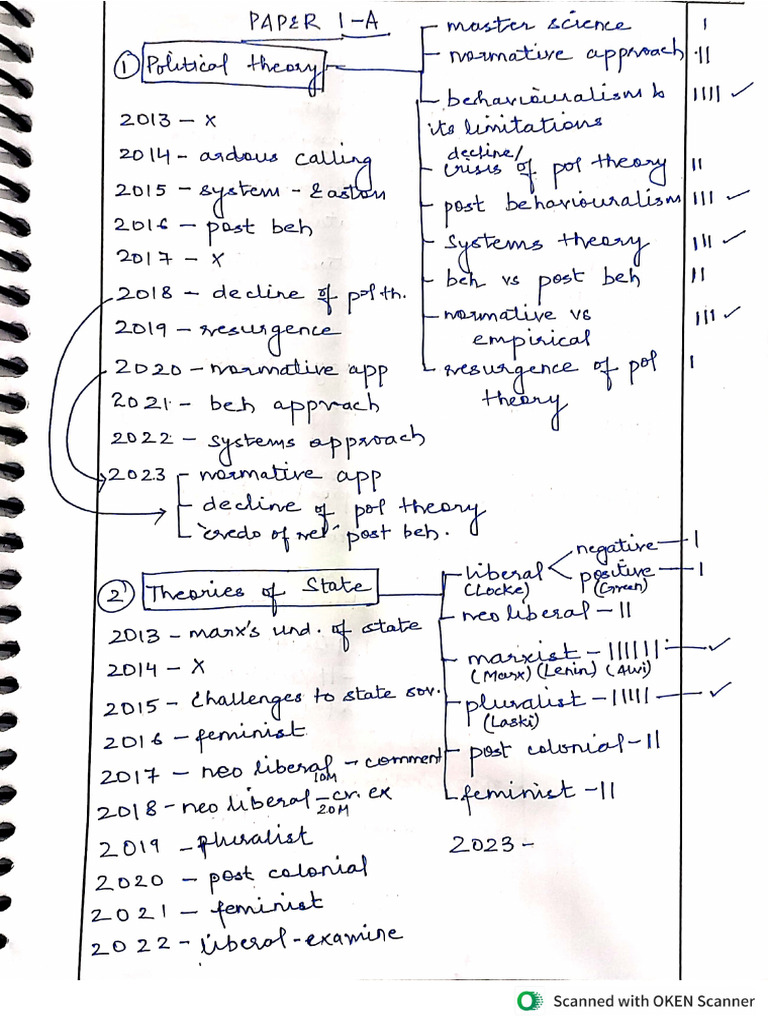 PAPER 1-A
① Political theory
master science I
normative approach II
behaviouralism & its limitations IIII ✓
decline/
crisis of pol theory II
post behaviouralism III ✓
systems theory III ✓
beh vs post beh II
normative vs empirical III ✓
resurgence of pol theory I
2013 - x
2014 - ardous calling
2015 - system - Easton
2016 - post beh
2017 - x
2018 - decline of pol th.
2019 - resurgence
2020 - normative app
2021 - beh approach
2022 - systems approach
2023 normative app
decline of pol theory
"credo of rel" post beh.
② Theories of State
liberal (Locke)
negative - I
positive - I
(Green)
neo liberal - II
marxist - IIIIII ✓
(Marx) (Lenin) (Alvi)
pluralist - IIIII ✓
(Laski)
post colonial - II
feminist - II
2023 -
2013 - marx's und. of state
2014 - X
2015 - challenges to state sov.
2016 - feminist
2017 - neo liberal - comment
10M
2018 - neo liberal - cr. ex
20M
2019 - pluralist
2020 - post colonial
2021 - feminist
2022 - liberal - examine
Scanned with OKEN Scanner